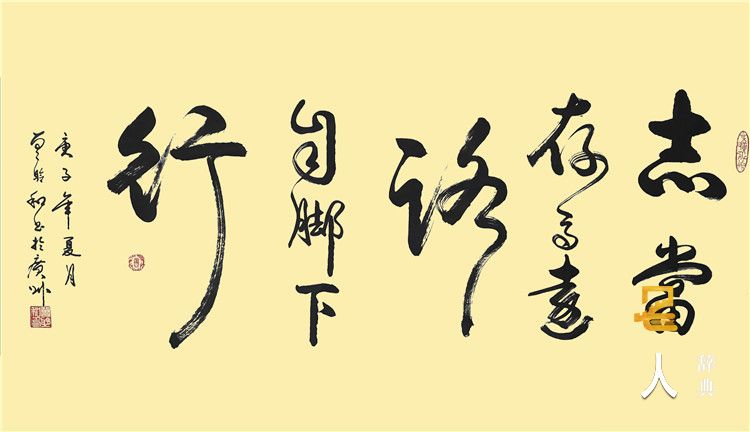 志當
存高遠
路
自脚下
行
庚子年夏月
和书於廣州
名人
辞典